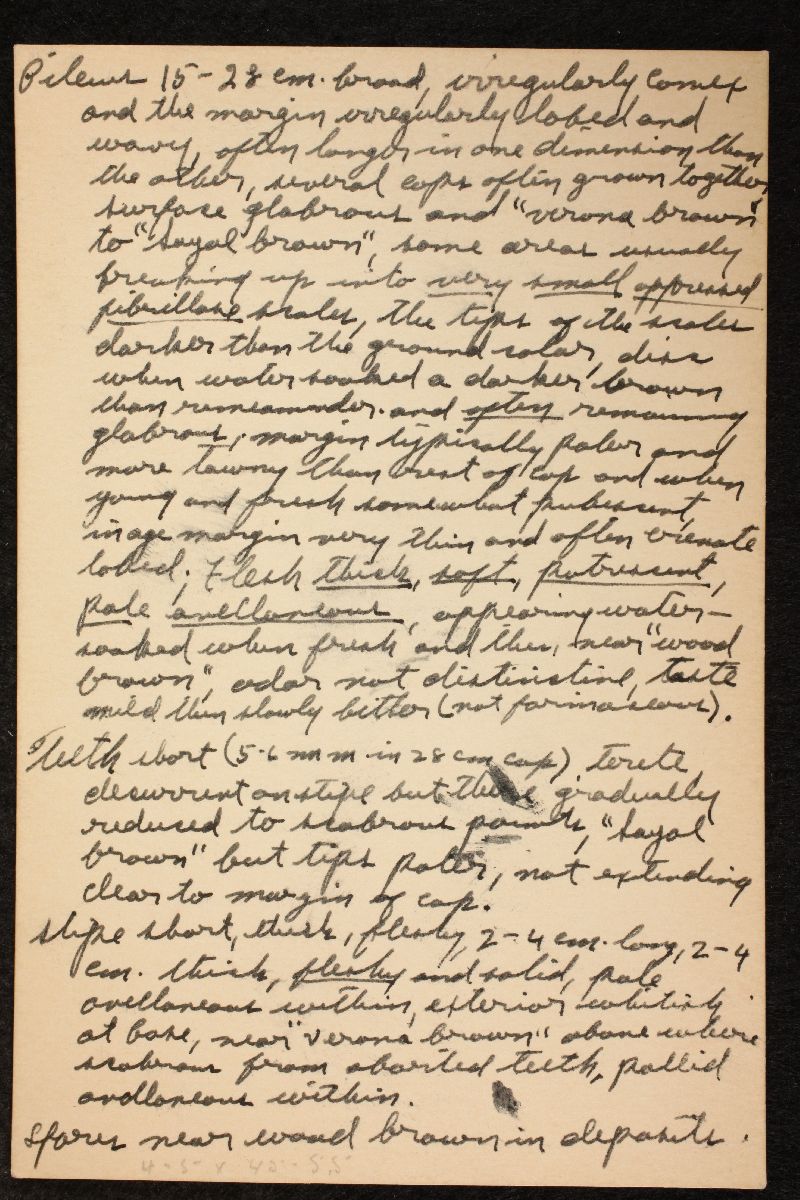 Pileus 15-28 cm. broad, irregularly convex
and the margin irregularly lobed and
wavy, often longer in one dimension than
the other, several caps often grown together,
surface glabrous and "verona brown"
to "sayal brown", some areas usually
breaking up into very small appressed
fibrillose scales, the tips of the scales
darker than the ground color, disc
when water soaked a darker brown
than remainder and often remaining
glabrous; margin typically paler and
more tawny than rest of cap and when
young and fresh somewhat pubescent,
in age margin very thin and often crenate
lobed; Flesh thick, soft, putrescent,
pale avellaneous, appearing water-
soaked when fresh and then near "wood
brown", odor not distinctive, taste
mild then slowly bitter (not farinaceous).
Teeth short (5-6 mm in 28 cm cap) terete,
decurrent on stipe but there gradually
reduced to scabrous points, "sayal
brown" but tips paler, not extending
clear to margin of cap.
Stipe short, thick, fleshy, 2-4 cm. long, 2-4
cm. thick, fleshy and solid, pale
avellaneous within, exterior whitish
at base, near "verona brown" above where
scabrous from aborted teeth, pallid
avellaneous within.
Spores near wood brown in deposits.
4-5 x